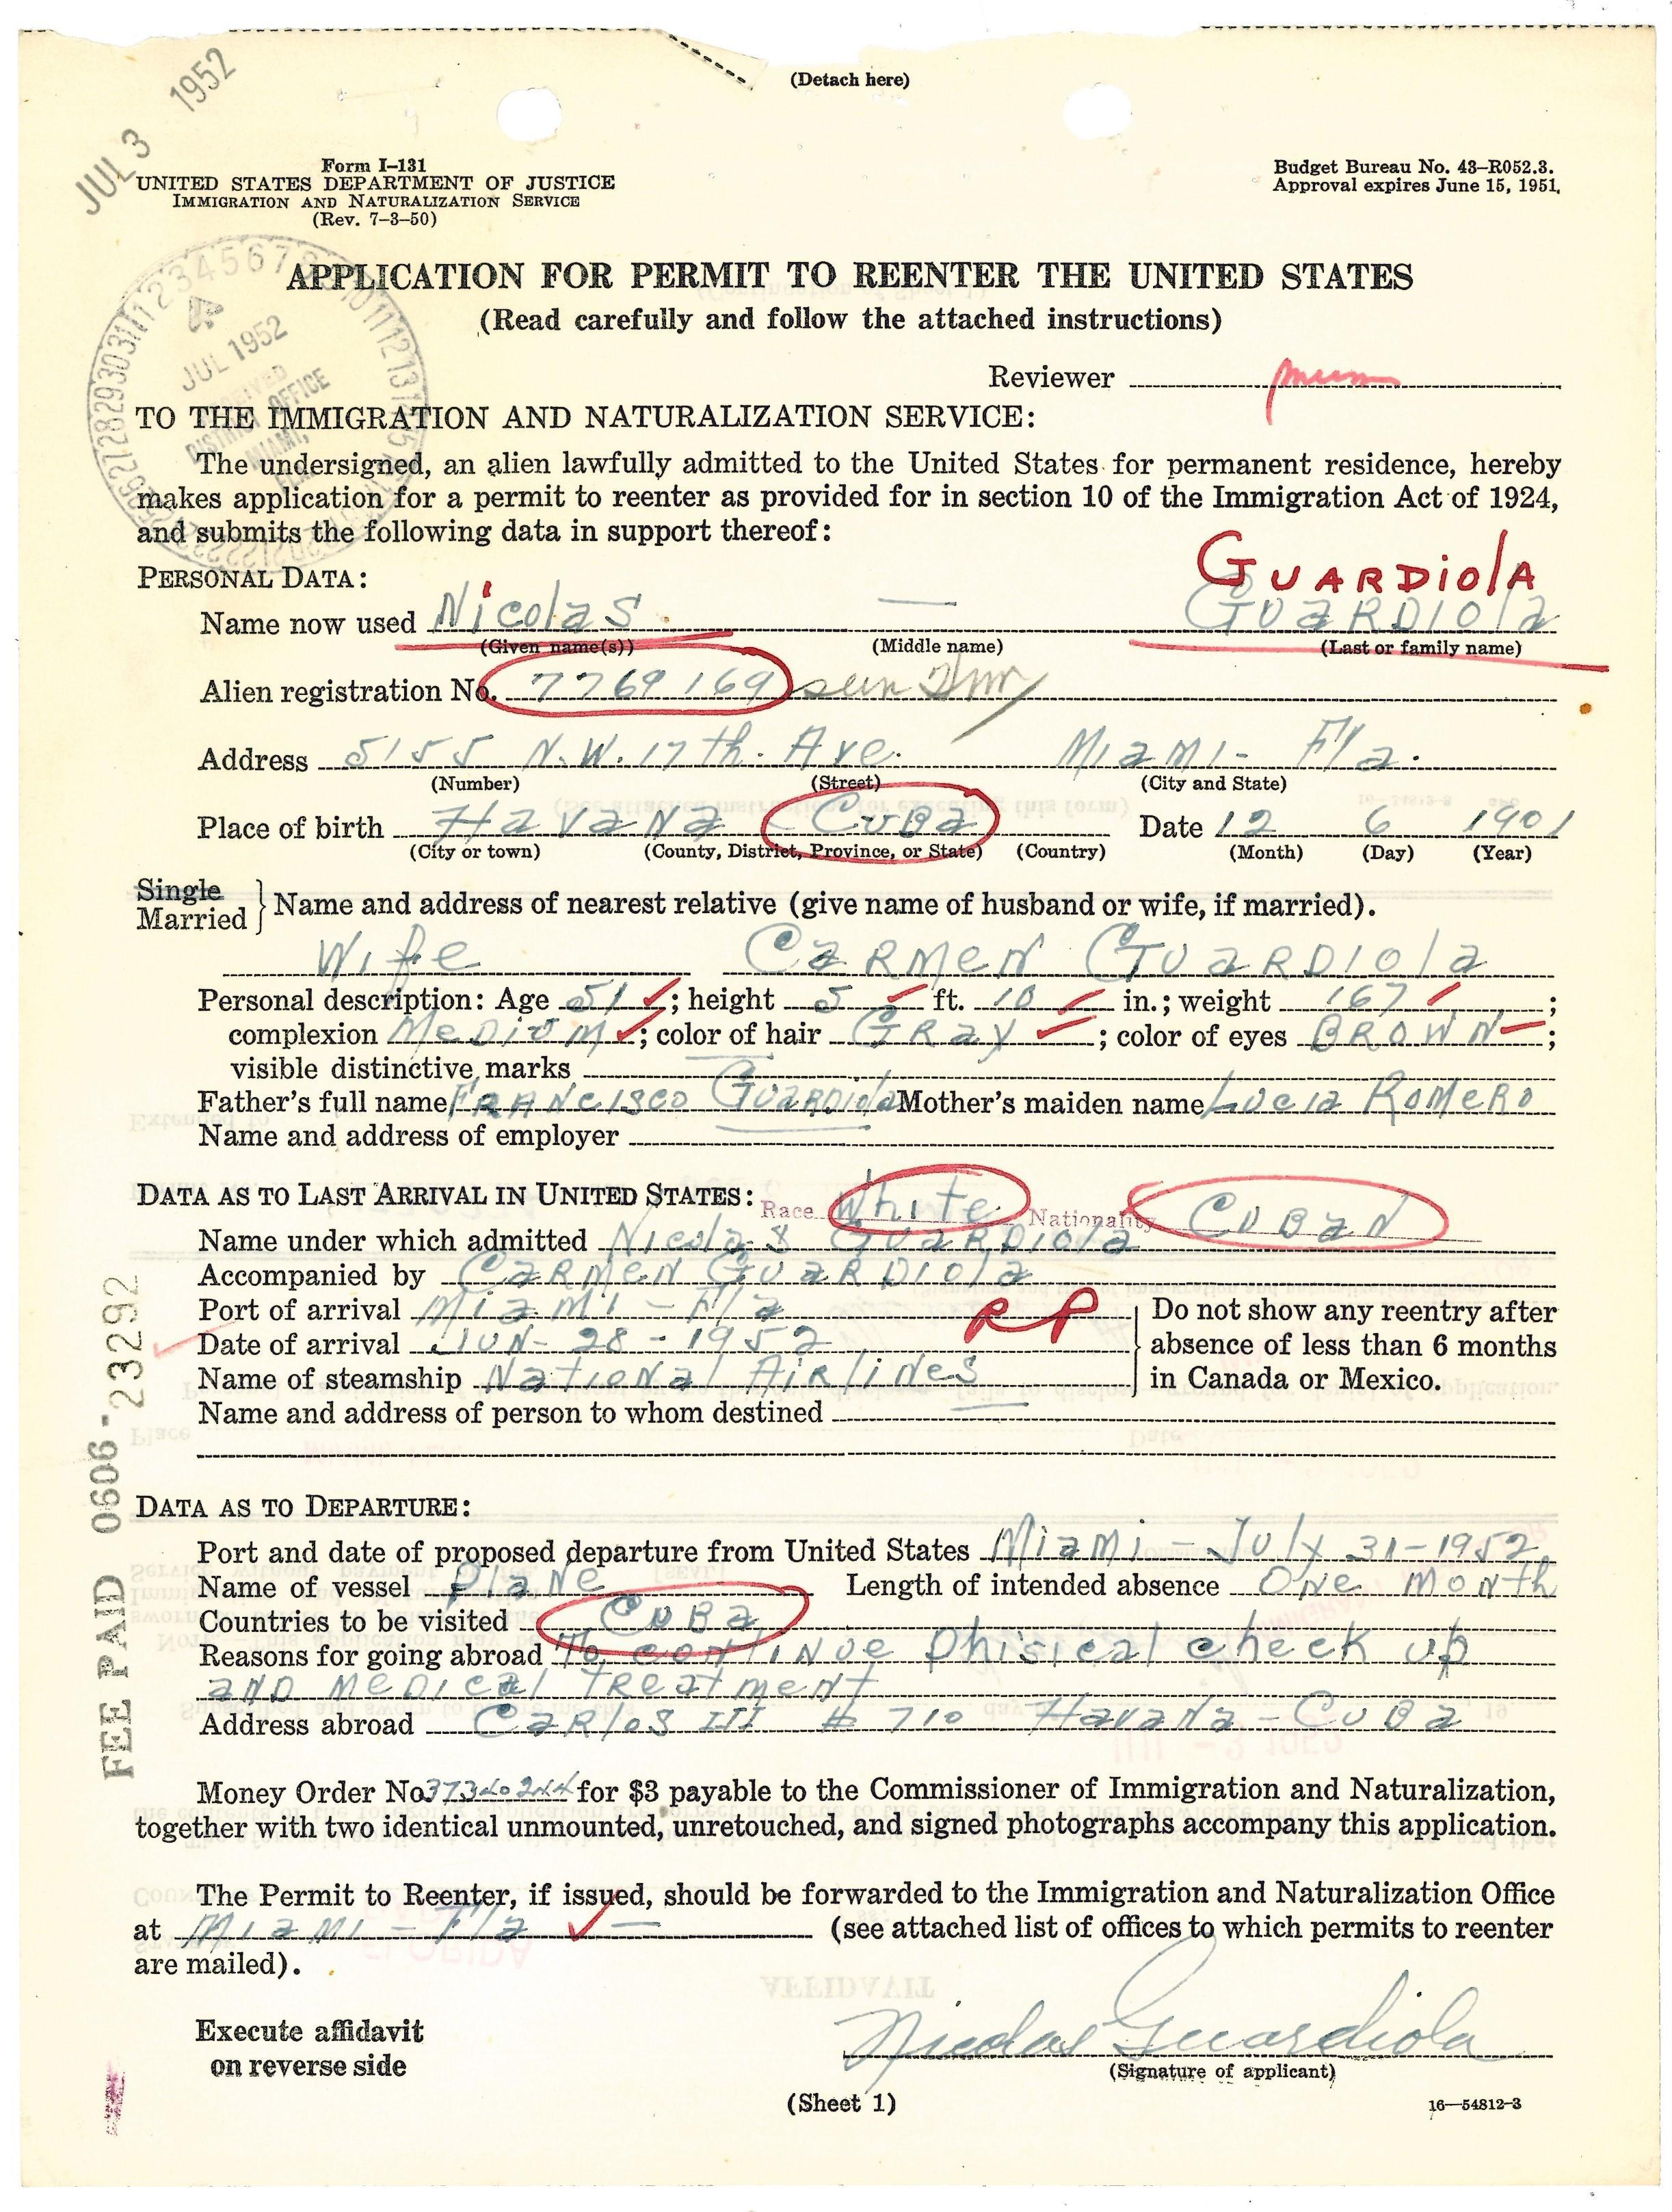 (Detach here)
JUL 3 1952
Form I–131
UNITED STATES DEPARTMENT OF JUSTICE
IMMIGRATION AND NATURALIZATION SERVICE
(Rev. 7–3–50)
Budget Bureau No. 43–R052.3.
Approval expires June 15, 1951.
JUL 1952
RECEIVED
DISTRICT OFFICE
MIAMI,
FLA.
APPLICATION FOR PERMIT TO REENTER THE UNITED STATES
(Read carefully and follow the attached instructions)
Reviewer
TO THE IMMIGRATION AND NATURALIZATION SERVICE:
The undersigned, an alien lawfully admitted to the United States for permanent residence, hereby
makes application for a permit to reenter as provided for in section 10 of the Immigration Act of 1924,
and submits the following data in support thereof:
GUARDiolA
PERSONAL DATA:
Name now used Nicolas — GUARDIOla
(Given name(s)) (Middle name) (Last or family name)
Alien registration No. 7769169
Address 5155 N.W. 17th. Ave. Miami- Fla.
(Number) (Street) (City and State)
Place of birth Havana Cuba Date 12 6 1901
(City or town) (County, District, Province, or State) (Country) (Month) (Day) (Year)
Single
Married
Name and address of nearest relative (give name of husband or wife, if married).
Wife CARMEN GUARDIOla
Personal description: Age 51; height 5 ft. 10 in.; weight 167;
complexion Medium; color of hair GRAY; color of eyes BROWN;
visible distinctive marks
Father's full name FRANCISCO GUARDIOla Mother's maiden name Lucia ROMERO
Name and address of employer
DATA AS TO LAST ARRIVAL IN UNITED STATES: Race White Nationality CUBAN
Name under which admitted Nicolas GUARDIOla
Accompanied by CARMEN GUARDIOla
Port of arrival Miami - Fla
RP
Date of arrival JUN - 28 - 1952
Name of steamship National Airlines
Do not show any reentry after
absence of less than 6 months
in Canada or Mexico.
Name and address of person to whom destined
DATA AS TO DEPARTURE:
Port and date of proposed departure from United States Miami - July 31-1952
Name of vessel Plane Length of intended absence One month
Countries to be visited CUBa
Reasons for going abroad To continue phisical check up
and medical treatment
Address abroad Carlos III # 710 Havana - Cuba
Money Order No. 37340244 for $3 payable to the Commissioner of Immigration and Naturalization,
together with two identical unmounted, unretouched, and signed photographs accompany this application.
The Permit to Reenter, if issued, should be forwarded to the Immigration and Naturalization Office
at Miami - Fla — (see attached list of offices to which permits to reenter
are mailed).
Execute affidavit
on reverse side
Nicolas Guardiola
(Signature of applicant)
(Sheet 1)
16—54812-3
FEE PAID 0606 - 23292